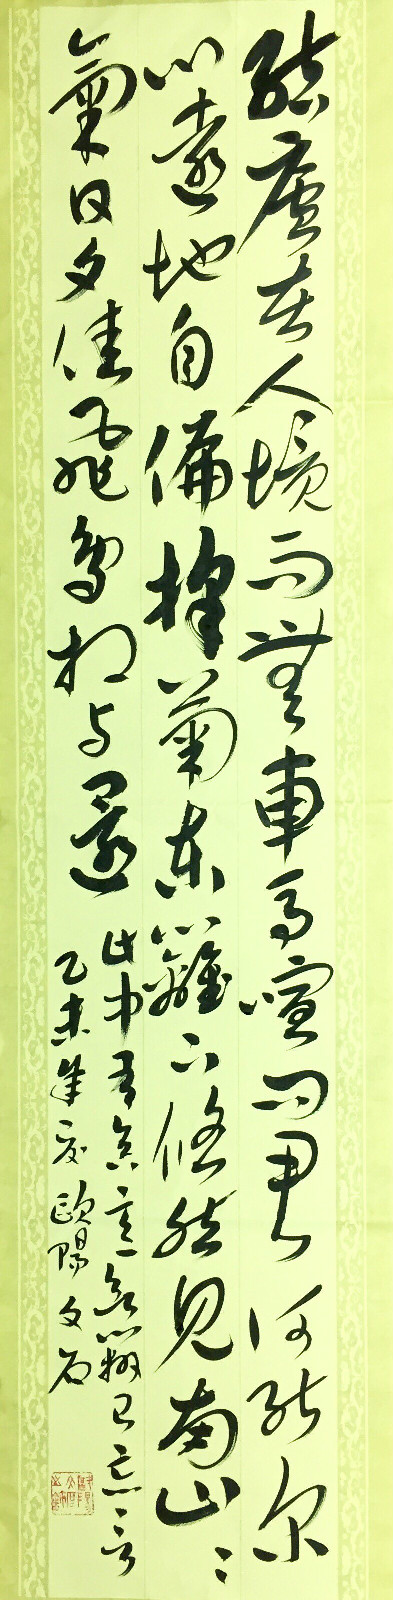 結廬在人境而無車馬喧問君何能尔
心遠地自偏採菊東籬下悠然見南山〻
氣日夕佳飛鳥相与還
此中有真意欲辨已忘言
乙未年夏歐陽文